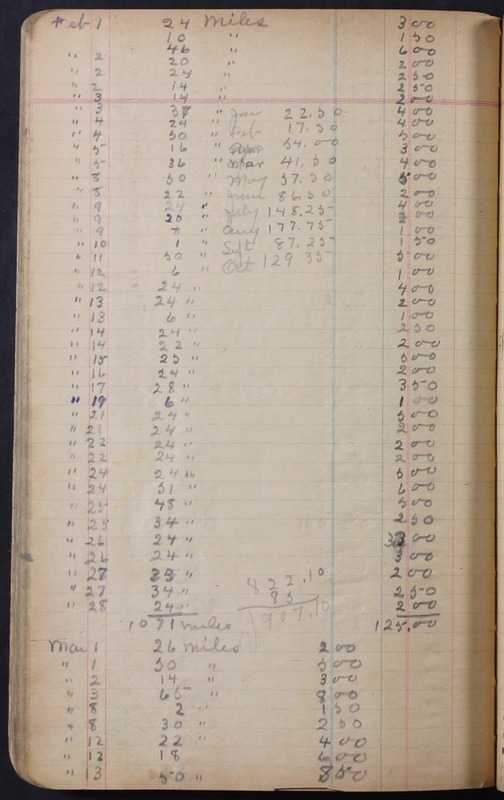 Feb 1 24 Miles 3 00
10 " 1 50
46 " 6 00
" 2 20 " 2
" 2 24 " 2 50
" 2 14 " 2 50
" 3 14 " 2
" 3 38 " Jan 22.50 4 00
" 4 24 " Feb 17.50 4 00
" 4 50 " 5 00
" 5 16 " 54.00 3 00
" 5 36 " Mar 41.50 4 00
" 8 50 " May 57.50 5 00
" 8 22 " June 86.50 2 00
" 9 24 " July 148.25 4 00
" 9 20 " 2 00
" 9 8 " Aug 177.75 1 00
" 10 1 " Sept 87.25 1 50
" 11 50 " Oct 129 35 5 00
" 12 6 " 1 00
" 12 24 " 4 00
" 13 24 " 2 00
" 13 6 " 1 00
" 14 24 " 2 50
" 14 22 " 2 00
" 15 25 " 00
" 16 24 " 2 00
" 17 28 " 3 50
" 19 6 " 1 00
" 21 24 " 5 00
" 21 24 " 2 00
" 22 24 " 2 00
" 22 24 " 2 00
" 24 24 " 5 00
" 24 51 " 6 00
" 25 48 " 5 00
" 25 34 " 2 50
" 26 24 " 00
" 26 24 " 3 00
" 27 " 2 00
" 27 34 " 2 50
" 28 24 " 2 00
822.10
85
907.10
1071 miles 125.00
Mar 1 26 miles 2 00
" 1 50 " 5 00
" 2 14 " 3 00
" 3 65 " 8 00
" 8 2 " 1 50
" 8 30 " 2 50
" 12 22 " 4 00
" 12 18 6 00
" 13 50 " 8 50